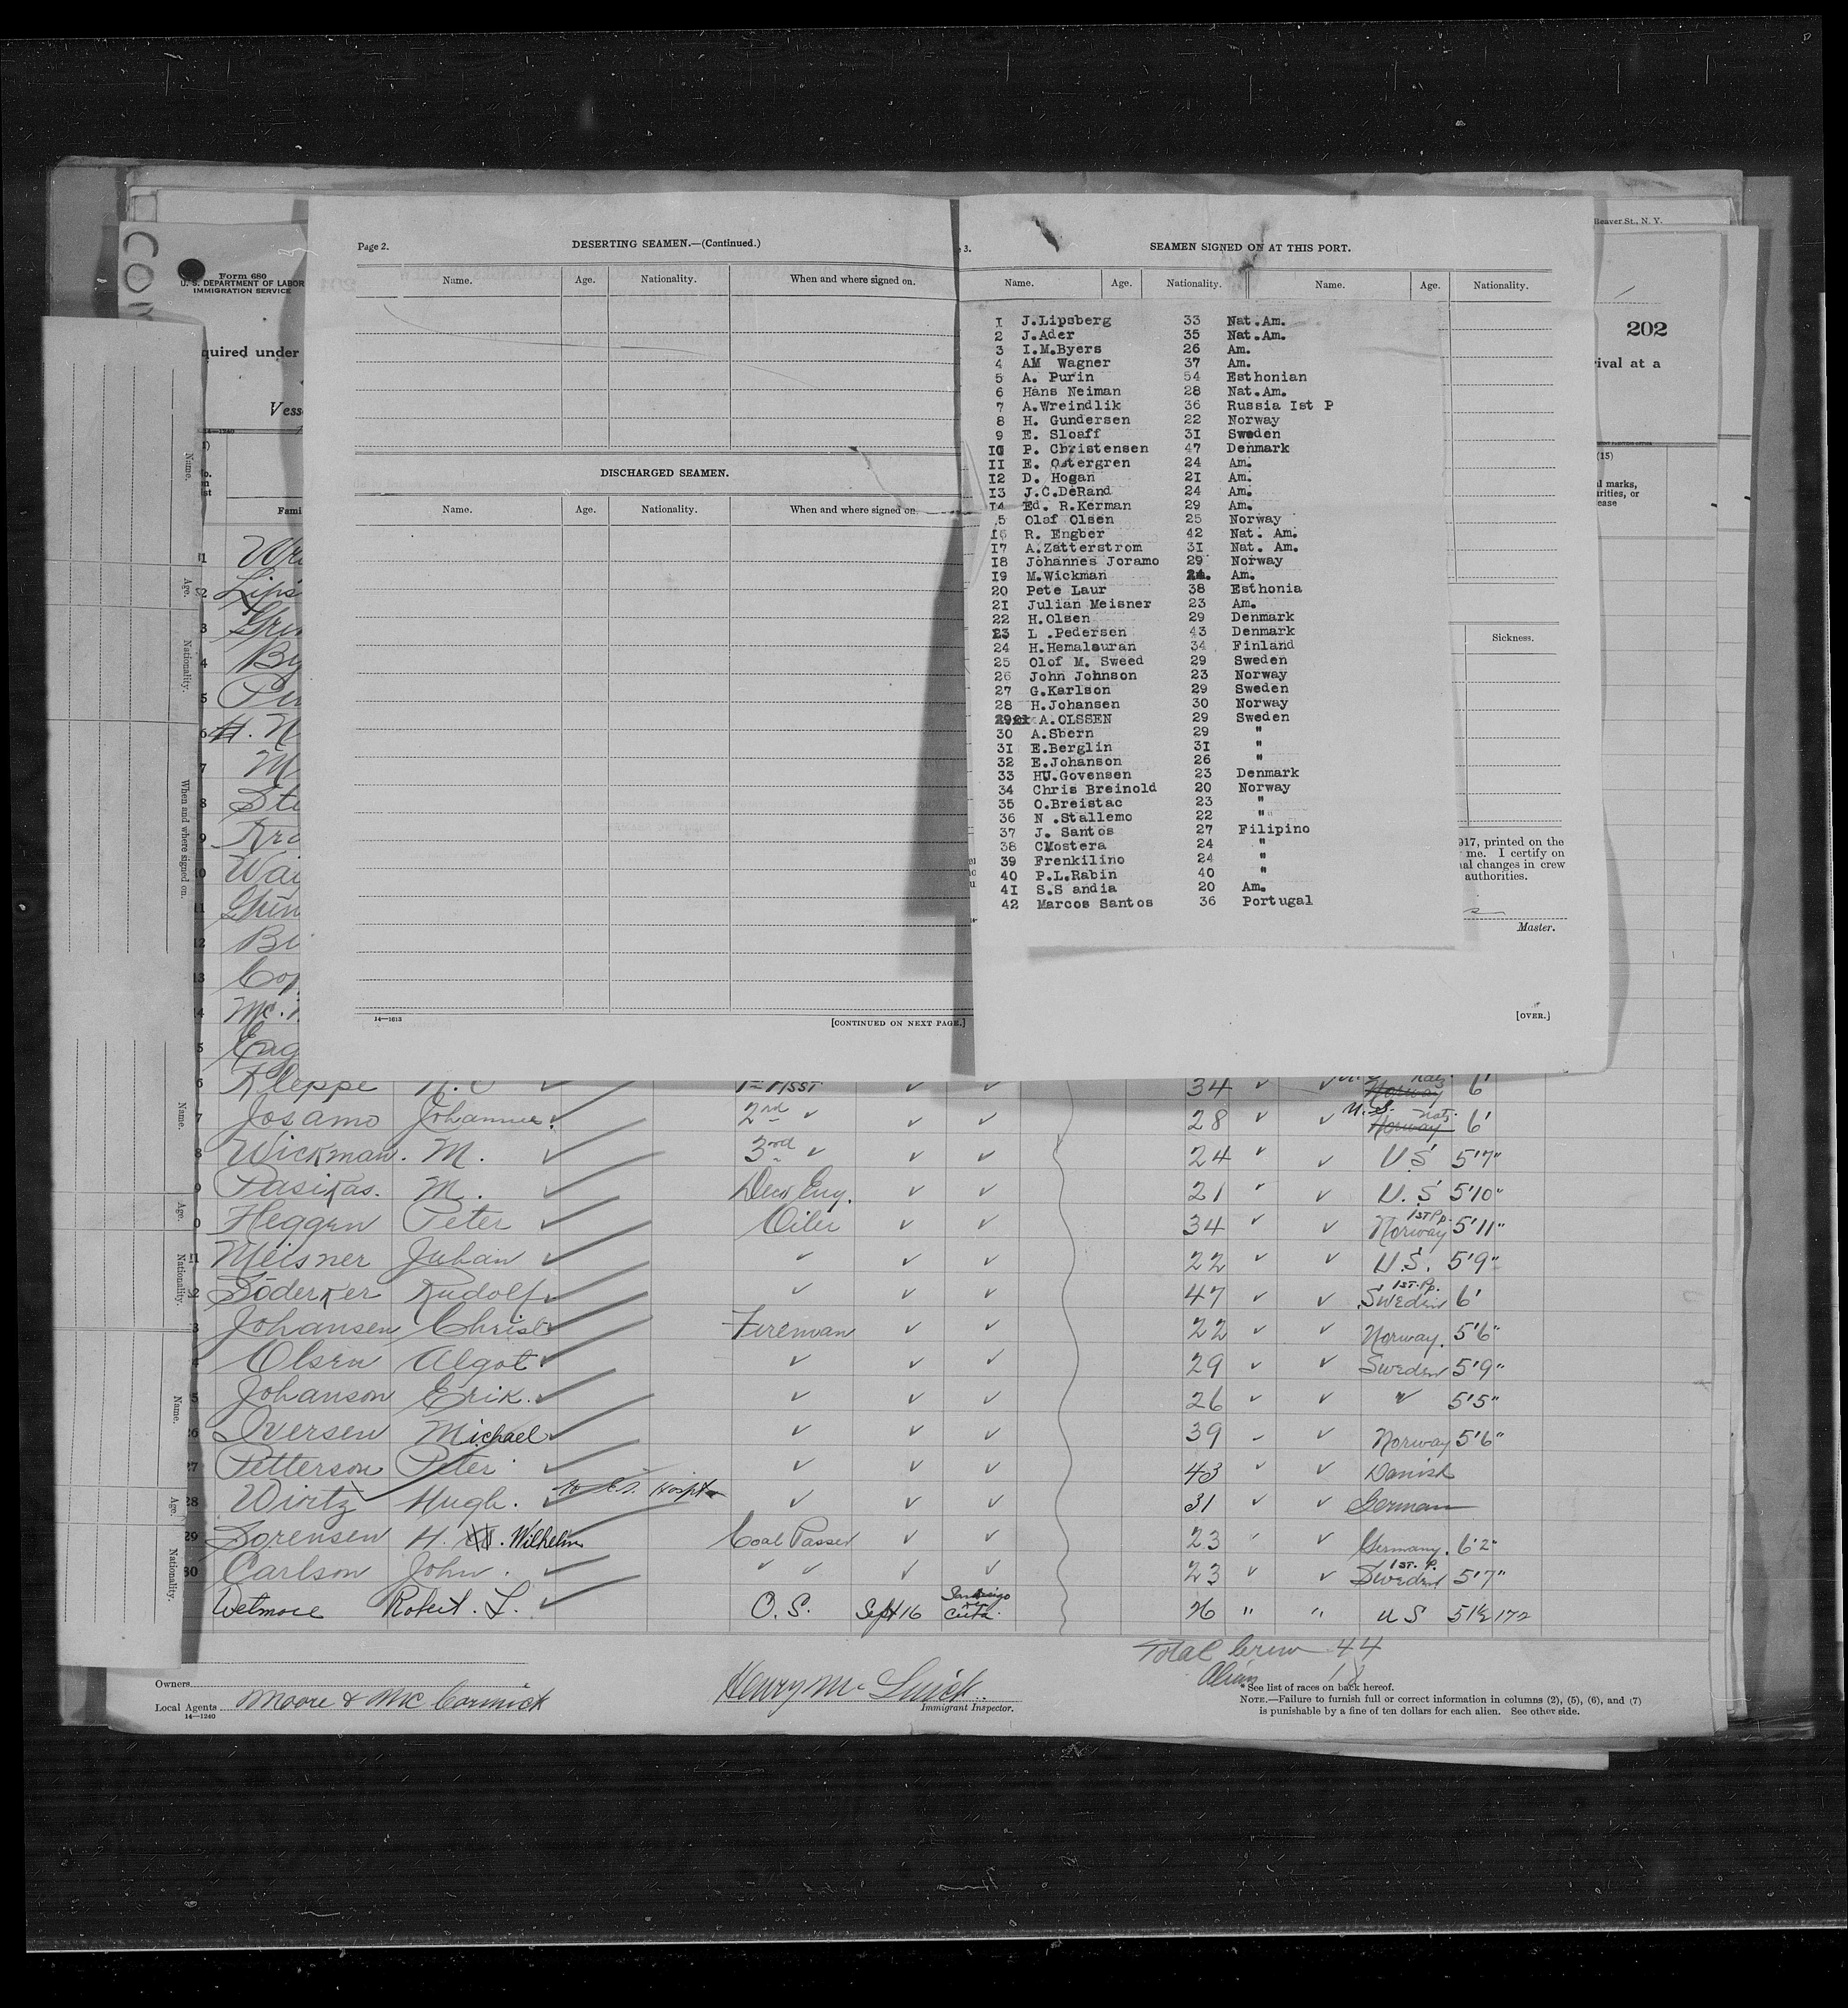 Beaver St., N. Y.
CO
Form 680
U. S. DEPARTMENT OF LABOR
IMMIGRATION SERVICE
202
quired under
ival at a
Vess
14—1240
(15)
l marks,
arities, or
ease
Fami
Page 2.
DESERTING SEAMEN.—(Continued.)
Name. Age. Nationality. When and where signed on.
DISCHARGED SEAMEN.
Name. Age. Nationality. When and where signed on.
14—1613
[CONTINUED ON NEXT PAGE.]
3.
SEAMEN SIGNED ON AT THIS PORT.
Name. Age. Nationality. Name. Age. Nationality.
I J.Lipsberg 33 Nat.Am.
2 J.Ader 35 Nat.Am.
3 I.M.Byers 26 Am.
4 AM Wagner 37 Am.
5 A. Purin 54 Esthonian
6 Hans Neiman 28 Nat.Am.
7 A.Wreindlik 36 Russia Ist P
8 H. Gundersen 22 Norway
9 E. Sloaff 3I Sweden
I0 P. Christensen 47 Denmark
II E. Ostergren 24 Am.
I2 D. Hogan 2I Am.
I3 J.C.DeRand 24 Am.
I4 Ed. R.Kerman 29 Am.
5 Olaf Olsen 25 Norway
I6 R. Engber 42 Nat. Am.
I7 A.Zatterstrom 3I Nat. Am.
I8 Johannes Joramo 29 Norway
I9 M.Wickman 24. Am.
20 Pete Laur 38 Esthonia
2I Julian Meisner 23 Am.
22 H.Olsen 29 Denmark
23 L .Pedersen 43 Denmark
24 H.Hemalauran 34 Finland
25 Olof M. Sweed 29 Sweden
26 John Johnson 23 Norway
27 G.Karlson 29 Sweden
28 H.Johansen 30 Norway
29 A.OLSSEN 29 Sweden
30 A.Sbern 29 "
3I E.Berglin 3I "
32 E.Johanson 26 "
33 HU.Govensen 23 Denmark
34 Chris Breinold 20 Norway
35 O.Breistac 23 "
36 N .Stallemo 22 "
37 J. Santos 27 Filipino
38 CMostera 24 "
39 Frenkilino 24 "
40 P.L.Rabin 40 "
4I S.S andia 20 Am.
42 Marcos Santos 36 Portugal
Sickness.
917, printed on the
me. I certify on
al changes in crew
authorities.
Master.
[OVER.]
Name.
Age.
Nationality.
When and where signed on.
Name.
Age.
Nationality.
Name.
Age.
Nationality.
1 Wre
2 Lips
3 Grin
4 By
5 Pur
6 H. N
7 M
8 Ste
9 Kro
10 Wai
11
12 Bi
13 Cop
4 Mc.
5 Eng
6 Kleppe 1st Asst 34 Norway 6'
7 Josamo Johannes. 2nd 28 U.S. Natz. Norway 6'
8 Wickman. M. 3rd 24 U S 5'7"
9 Pasikas. M. Deck Eng. 21 U.S 5'10"
0 Heggen Peter Oiler 34 1st Pp. Norway 5'11"
11 Meisner Julian 22 U.S. 5'9"
Söderker Rudolf 47 1st. Pp. Sweden 6'
3 Johansen Christ Fireman 22 Norway. 5'6"
Olsen Algot 29 Sweden 5'9"
5 Johanson Erik. 26 " 5'5"
26 Iversen Michael 39 Norway 5'6"
27 Petterson Peter 43 Danish
28 Wirtz Hugh. to Hospt 31 German
29 Sorensen H. Wilhelm Coal Passer 23 Germany. 6'2"
30 Carlson John. 23 1st. P. Sweden 5'7"
Wetmore Robert. L. O. S. Sept 16 Cuba. 26 " " U S 5 1½ 172
Total Crew 44
Alien
Owners
Local Agents Moore & McCormick
14—1240
Immigrant Inspector.
*See list of races on back hereof.
NOTE.—Failure to furnish full or correct information in columns (2), (5), (6), and (7)
is punishable by a fine of ten dollars for each alien. See other side.